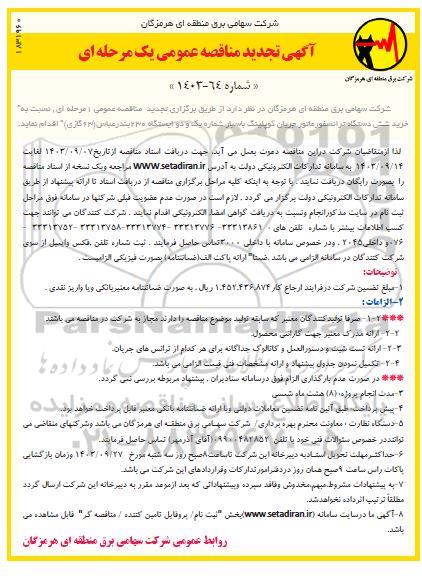 شرکت سهامی برق منطقه ای هرمزگان
آگهی تجدید مناقصه عمومی یک مرحله ای
شرکت برق منطقه ای هرمزگان
« شماره ۶۴-۱۴۰۳ »
شرکت سهامی برق منطقه ای هرمزگان در نظر دارد از طریق برگزاری تجدید مناقصه عمومی ۱ مرحله ای , نسبت به"
خرید شش دستگاه ترانسفورماتور جریان کوپلینگ باسبار شماره یک و دو ایستگاه ۲۳۰ بندرعباس (۶۳گازی)" اقدام نماید.
لذا ازمتقاضیان شرکت دراین مناقصه دعوت بعمل می آید، جهت دریافت اسناد مناقصه ازتاریخ ۱۴۰۳/۰۹/۰۷ لغایت
۱۴۰۳/۰۹/۱۴ به سامانه تدارکات الکترونیکی دولت به آدرس www.setadiran.ir مراجعه ویک نسخه از اسناد مناقصه
را بصورت رایگان دریافت نمایند . با توجه به اینکه کلیه مراحل برگزاری مناقصه از دریافت اسناد تا ارائه پیشنهاد از طریق
سامانه تدارکات الکترونیکی دولت برگزار می گردد . لازم است در صورت عدم عضویت قبلی شرکتها در سامانه فوق مراحل
ثبت نام در سایت مذکور انجام ونسبت به دریافت گواهی امضا الکترونیکی اقدام نمایند . شرکت کنندگان می توانند جهت
کسب اطلاعات بیشتر با شماره تلفن های ۳۳۳۱۳۸۶۱ -۳۳۳۱۳۷۷۶ -۳۳۳۱۳۷۵۸ -۳۳۳۱۳۷۵۲ -
۰۷۶ و داخلی ۲۰۴۵ , ودر خصوص سامانه با داخلی ۳۰۰۰ تماس حاصل فرمایند . ثبت شماره تلفن ،فکس وایمیل از سوی
شرکت کنندگان در سامانه الزامی می باشد .ضمنا" ارائه پاکت الف(ضمانتنامه) بصورت فیزیکی الزامیست .
توضیحات:
۱-مبلغ تضمین شرکت درفرایند ارجاع کار ۱.۴۵۲.۴۳۶.۸۷۴ ریال . به صورت ضمانتنامه معتبربانکی ویا واریز نقدی .
۲- الزامات :
***۱-۲- صرفا تولیدکنندگان معتبر که سابقه تولید موضوع مناقصه را دارند مجاز به شرکت در مناقصه می باشند
۲-۲- ارائه مدرک معتبر جهت گارانتی محصول.
۲-۳- ارائه تست شیت و دستورالعمل و کاتالوگ جداگانه برای هر کدام از ترانس های جریان.
۲-۴- تکمیل نمودن جدول پیشنهاد و ارائه مشخصات فنی قیمت الزامی می باشد.
*** در صورت عدم بارگذاری الزام فوق درسامانه ستادیران , پیشنهاد مربوطه بررسی نمی گردد.
۳-مدت انجام پروژه: (۸) هشت ماه شمسی
۴-پیش پرداخت: طبق آئین نامه تضمین معاملات دولتی وبا ارائه ضمانتنامه بانکی معتبر قابل پرداخت خواهد بود.
۵-دستگاه نظارت : معاونت محترم بهره برداری/ شرکت سهامی برق منطقه ای هرمزگان می باشد وشرکتهای متقاضی می
توانند در خصوص سئوالات فنی خود با تلفن
۶-حداکثرمهلت تحویل اسنادبه دبیرخانه این شرکت تاساعت ۸ صبح روز سه شنبه مورخ ۱۴۰۳/۰۹/۲۷ وزمان بازگشایی
پاکات راس ساعت ۹ صبح همان روز دردفترامورتدارکات وقراردادهای این شرکت می باشد.
۷-به پیشنهادات مشروط,مبهم,مخدوش وفاقد سپرده وپیشنهاداتی که بعد ازموعد مقرر به دبیرخانه این شرکت ارسال گردد
مطلقاً ترتیب اثر داده نخواهدشد.
۸-آگهی ما درسایت سامانه (www.setadiran.ir)بخش "ثبت نام/ پروفایل تامین کننده / مناقصه گر" قابل مشاهده می
باشد.
روابط عمومی شرکت سهامی برق منطقه ای هرمزگان